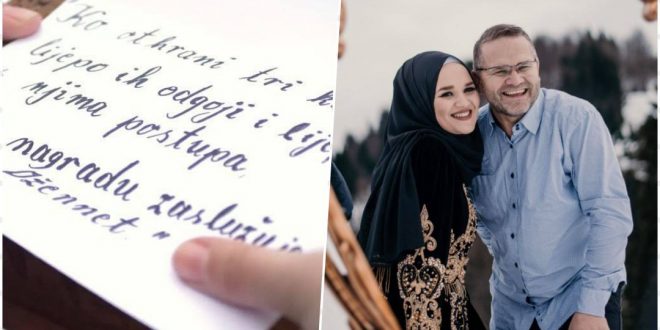 "Ko othrani tri k
lijepo ih odgoji i lij
njima postupa,
nagradu zaslužuje
Džennet."